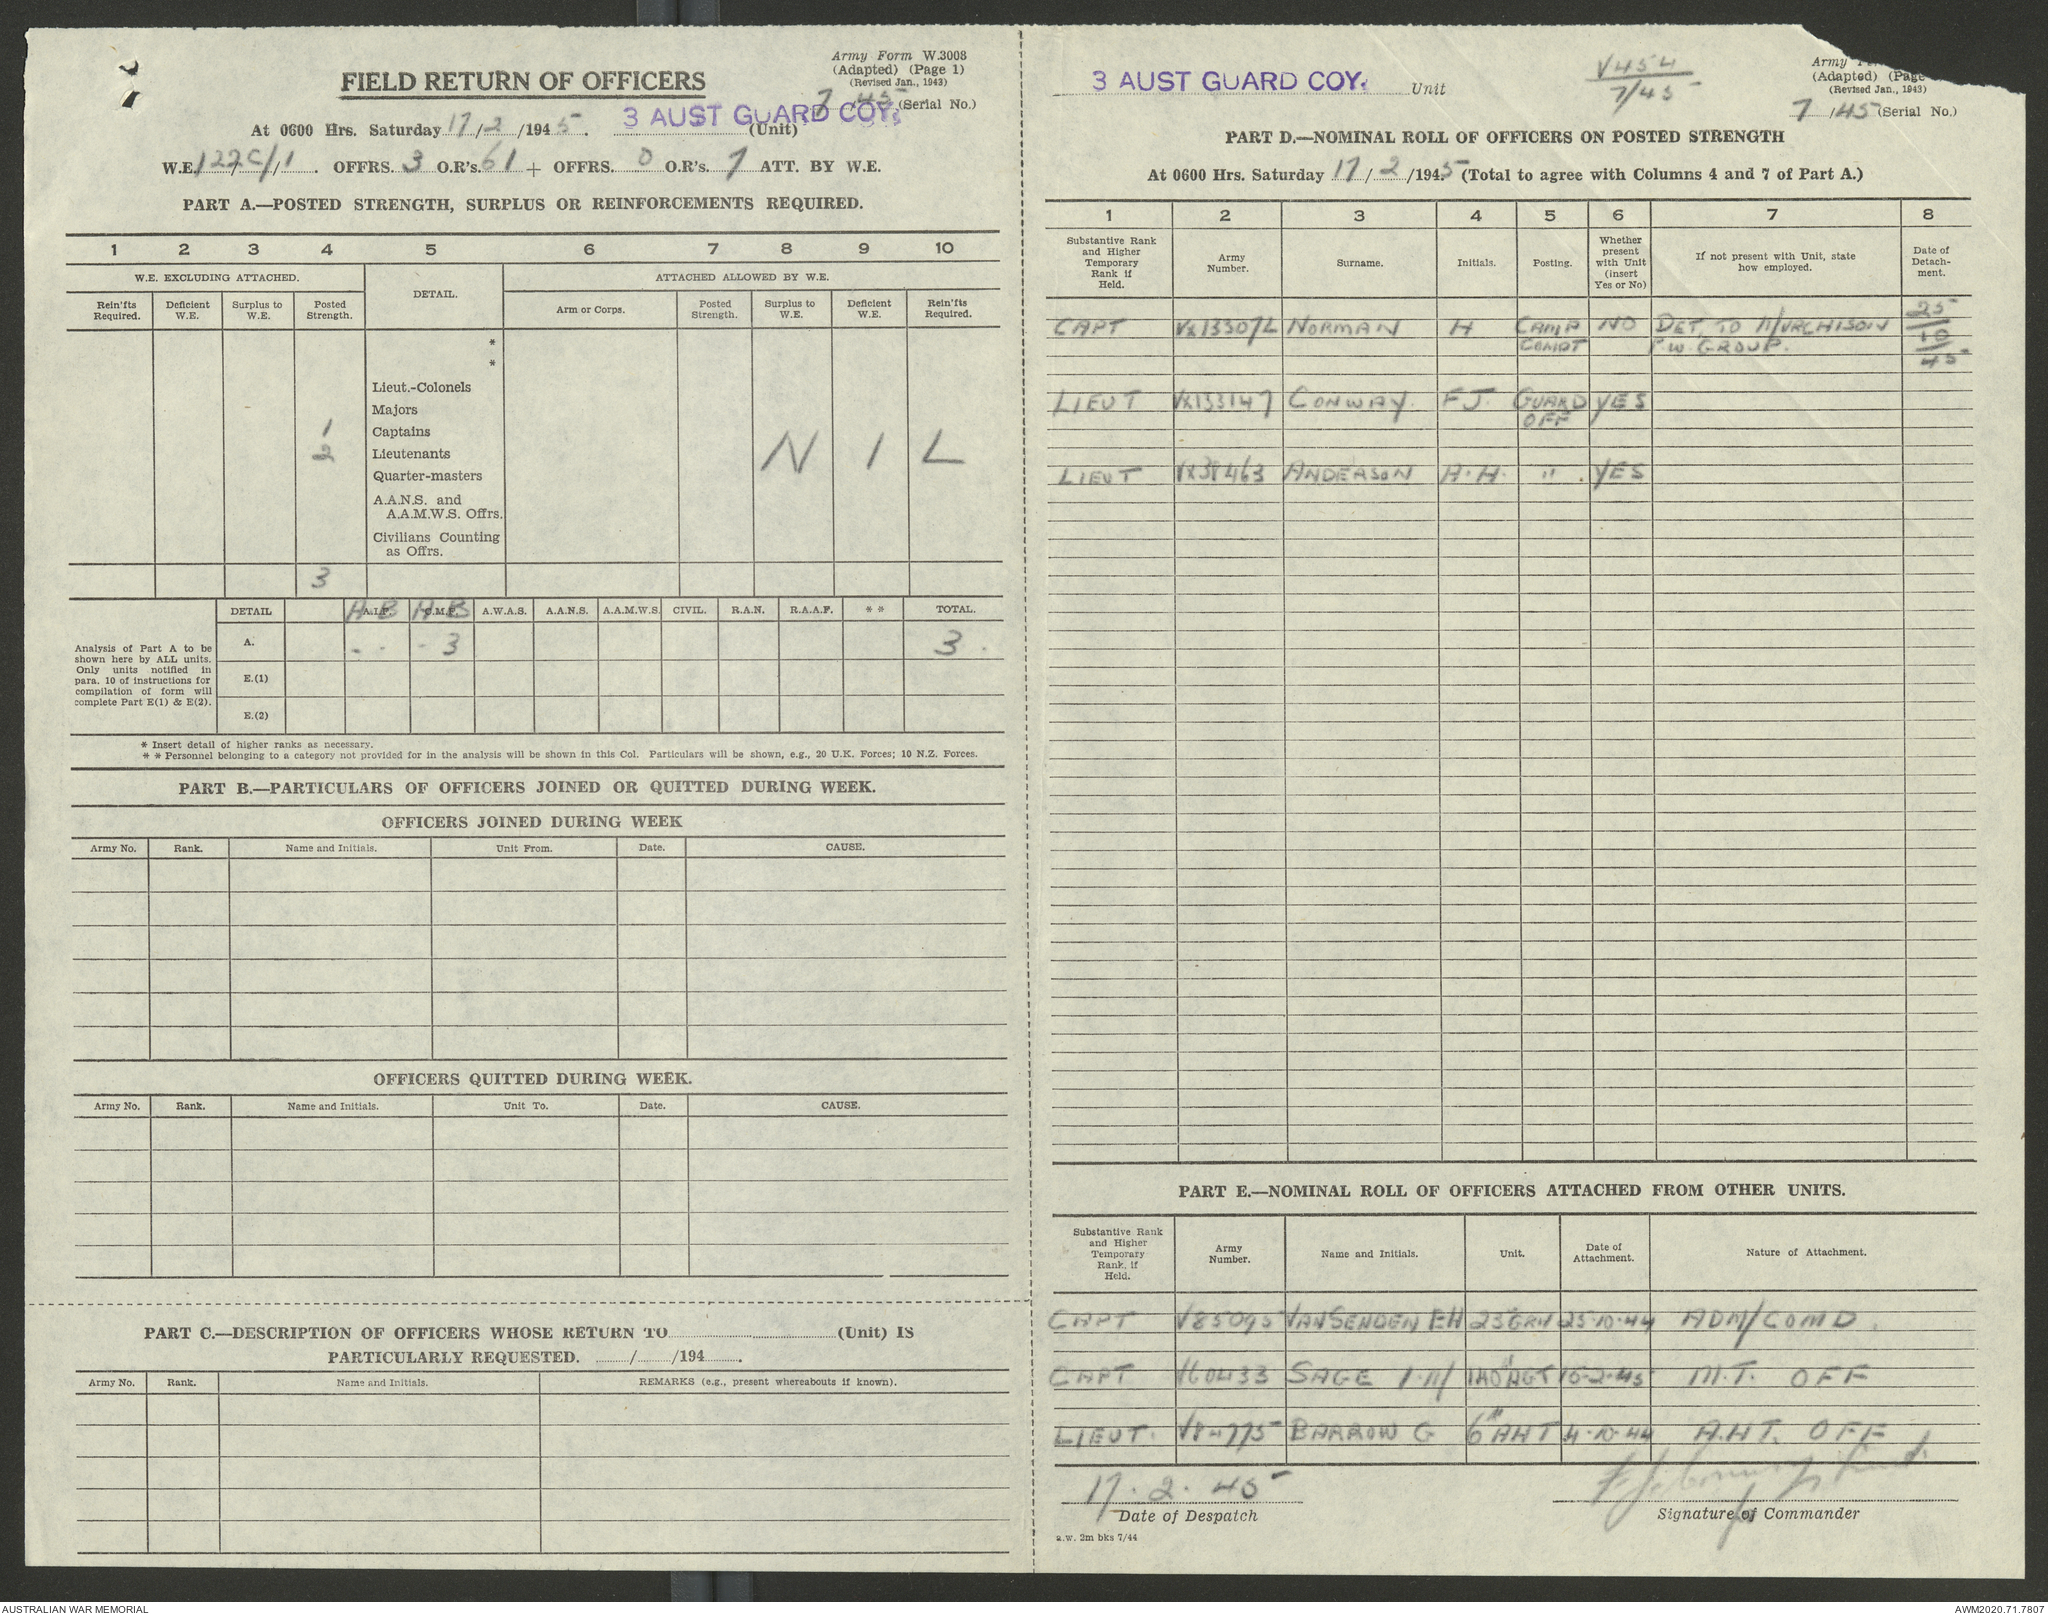 Army Form W.3008
(Adapted) (Page 1)
(Revised Jan., 1943)
FIELD RETURN OF OFFICERS
7/45 (Serial No.)
At 0600 Hrs. Saturday 17/2/1945. 3 AUST GUARD COY. (Unit)
W.E. 122C/1. OFFRS. 3 O.R's. 61 + OFFRS. 0 O.R's. 7 ATT. BY W.E.
PART A.—POSTED STRENGTH, SURPLUS OR REINFORCEMENTS REQUIRED.
1 2 3 4 5 6 7 8 9 10
W.E. EXCLUDING ATTACHED. DETAIL. ATTACHED ALLOWED BY W.E.
Rein'fts Required. Deficient W.E. Surplus to W.E. Posted Strength. Arm or Corps. Posted Strength. Surplus to W.E. Deficient W.E. Rein'fts Required.
*
*
Lieut.-Colonels
Majors
1 Captains
2 Lieutenants N I L
Quarter-masters
A.A.N.S. and
A.A.M.W.S. Offrs.
Civilians Counting
as Offrs.
3
DETAIL A B A.I.F. A B C.M.F. A.W.A.S. A.A.N.S. A.A.M.W.S. CIVIL. R.A.N. R.A.A.F. * * TOTAL.
Analysis of Part A to be
shown here by ALL units.
Only units notified in
para. 10 of instructions for
compilation of form will
complete Part E(1) & E(2).
A. - - - 3 3
E.(1)
E.(2)
* Insert detail of higher ranks as necessary.
* * Personnel belonging to a category not provided for in the analysis will be shown in this Col. Particulars will be shown, e.g., 20 U.K. Forces; 10 N.Z. Forces.
PART B.—PARTICULARS OF OFFICERS JOINED OR QUITTED DURING WEEK.
OFFICERS JOINED DURING WEEK
Army No. Rank. Name and Initials. Unit From. Date. CAUSE.
OFFICERS QUITTED DURING WEEK.
Army No. Rank. Name and Initials. Unit To. Date. CAUSE.
PART C.—DESCRIPTION OF OFFICERS WHOSE RETURN TO (Unit) IS
PARTICULARLY REQUESTED. / /194 .
Army No. Rank. Name and Initials. REMARKS (e.g., present whereabouts if known).
3 AUST GUARD COY. Unit
V454
7/45
Army
(Adapted) (Page
(Revised Jan., 1943)
7/45 (Serial No.)
PART D.—NOMINAL ROLL OF OFFICERS ON POSTED STRENGTH
At 0600 Hrs. Saturday 17/2/1945 (Total to agree with Columns 4 and 7 of Part A.)
1 2 3 4 5 6 7 8
Substantive Rank and Higher Temporary Rank if Held. Army Number. Surname. Initials. Posting. Whether present with Unit (insert Yes or No) If not present with Unit, state how employed. Date of Detachment.
CAPT NORMAN H CAMP COMDT NO DET. TO MURCHISON P.W. GROUP. 25/10/45
LIEUT VX133147 CONWAY. F J. GUARD OFF YES
LIEUT ANDERSON A. H. " . YES
PART E.—NOMINAL ROLL OF OFFICERS ATTACHED FROM OTHER UNITS.
Substantive Rank and Higher Temporary Rank, if Held. Army Number. Name and Initials. Unit. Date of Attachment. Nature of Attachment.
CAPT V85095 VANSENDEN EH 25·10·44 ADM/COMD.
CAPT V60433 SAGE M.T. OFF
LIEUT. BARROW G 6th AHT 4·10·44 A.H.T. OFF
17·2·45
Date of Despatch Signature of Commander
a.w. 2m bks 7/44
AUSTRALIAN WAR MEMORIAL AWM2020.71.7807